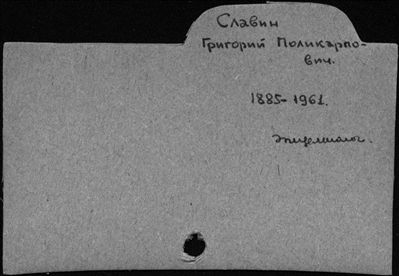 Славин
Григорий Поликарпо-
вич.
1885-1961.
эпидемиолог.